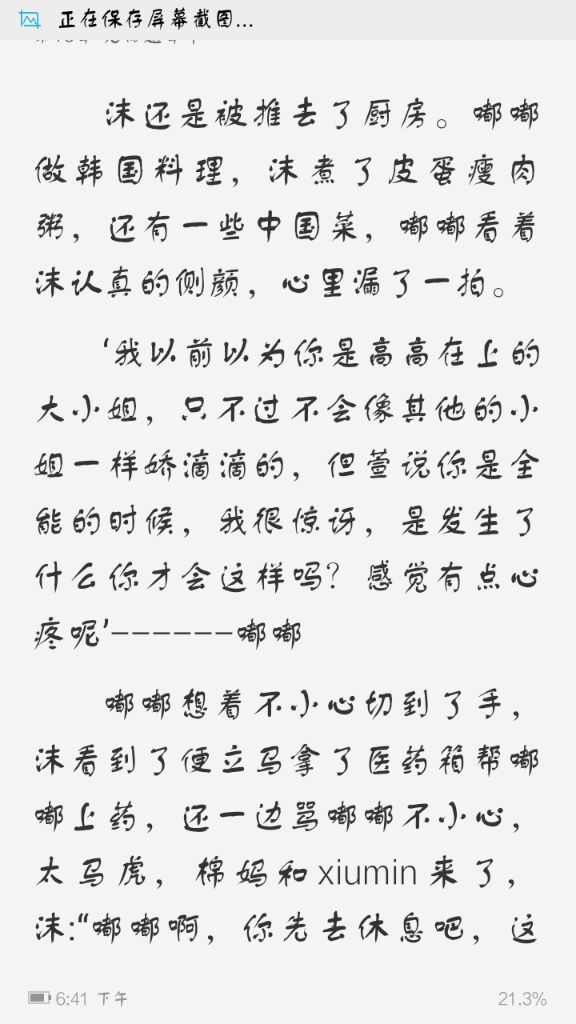 正在保存屏幕截图...
沫还是被推去了厨房。嘟嘟
做韩国料理，沫煮了皮蛋瘦肉
粥，还有一些中国菜，嘟嘟看着
沫认真的侧颜，心里漏了一拍。
‘我以前以为你是高高在上的
大小姐，只不过不会像其他的小
姐一样娇滴滴的，但萱说你是全
能的时候，我很惊讶，是发生了
什么你才会这样吗？感觉有点心
疼呢’------嘟嘟
嘟嘟想着不小心切到了手，
沫看到了便立马拿了医药箱帮嘟
嘟上药，还一边骂嘟嘟不小心，
太马虎，棉妈和xiumin来了，
沫:“嘟嘟啊，你先去休息吧，这
6:41 下午
21.3%